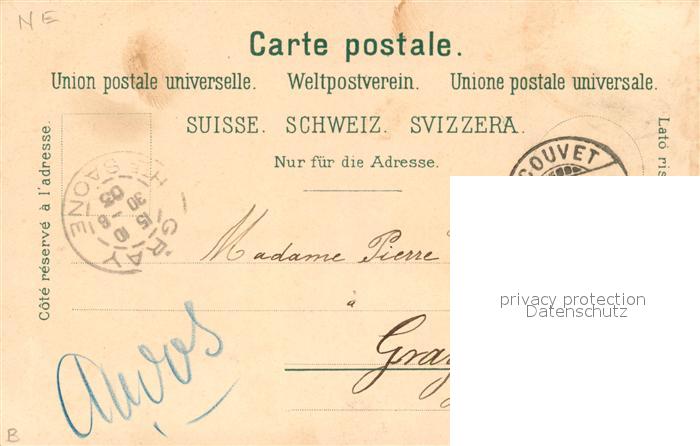 NE
Carte postale.
Union postale universelle. Weltpostverein. Unione postale universale.
SUISSE. SCHWEIZ. SVIZZERA.
Nur für die Adresse.
Côté réservé à l'adresse.
Lato ris
COUVET
GRAY
HTE SAONE
15
30 -8
03
Madame Pierre
à
Gray
privacy protection
Datenschutz
B